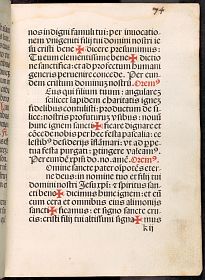 74
nos indigni famuli tui: per inuocatio-
nem vnigeniti filij tui domini nostri ie-
su christi bene✠dicere presumimus:
Tu eum clementissime bene✠dicito
ne sanctifica: et ad profectum humani
generis peruenire concede. Per eun-
dem christum dominum nostrum. Orem9
Eus qui filium tuum: angularem
scilicet lapidem charitatis ignes
fidelibus contulisti: productum de si-
lice: nostris profuturum vsibus: noui
hunc ignem sancti✠ficare dignare et
cōcede nobis per hec festa paschalia: ce-
lestibus desiderijs īflāmari: vt ad ppe-
tua festa puris mentibus: pertingere valeamus.
Per eundē xpm do. no. amē. Orem9
Omine sancte pater oīpotēs eter-
ne deus: in nomine tuo et filij tui
domini nostri Jesu xpi: et spiritus san-
cti bene✠dicimus hunc ignem: et
cum cera et omnibus eius alimonijs
sancti✠ficamus: et signo sancte cru-
cis: christi filij tui altissimi signa✠mus
k ij